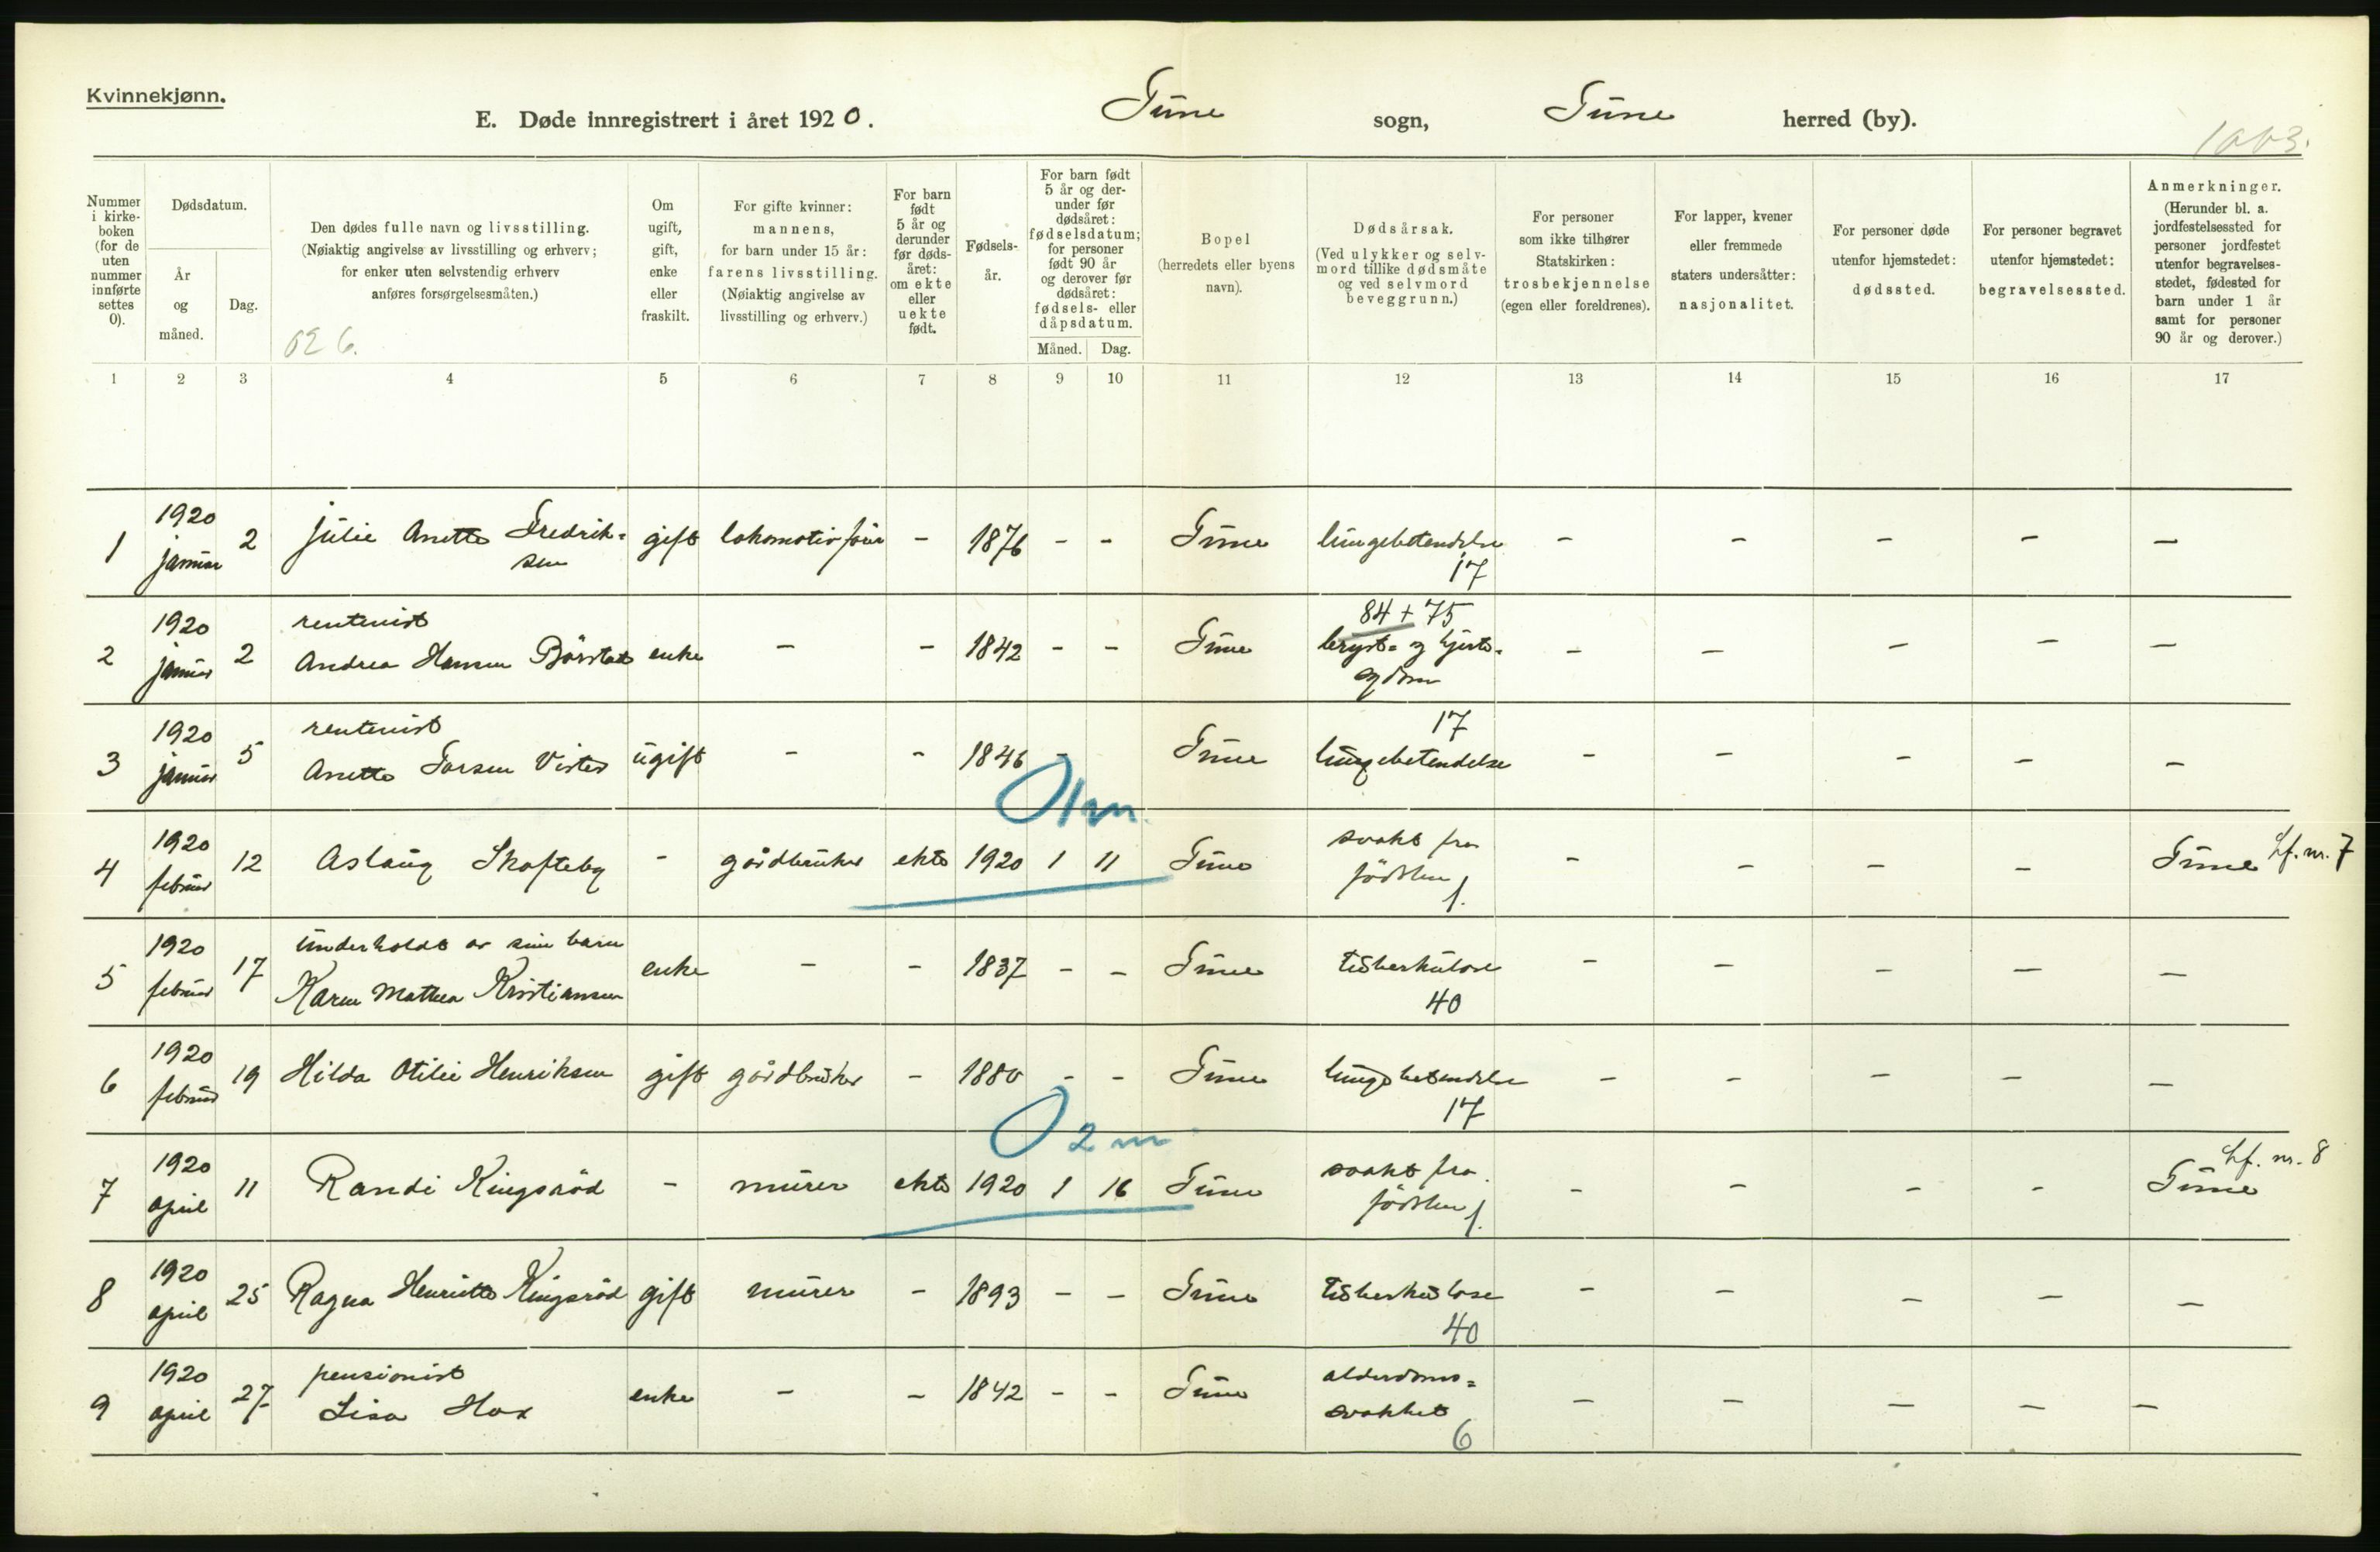 Kvinnekjønn.
E. Døde innregistrert i året 1920. Tune sogn, Tune herred (by).
Nummer i kirke-boken (for de uten nummer innførte settes 0).
Dødsdatum.
År og måned.
Dag.
Den dødes fulle navn og livsstilling.
(Nøiaktig angivelse av livsstilling og erhverv;
for enker uten selvstendig erhverv
anføres forsørgelsesmåten.)
Om ugift, gift, enke eller fraskilt.
For gifte kvinner:
mannens,
for barn under 15 år:
farens livsstilling.
(Nøiaktig angivelse av
livsstilling og erhverv.)
For barn født 5 år og derunder før døds-året: om ekte eller uekte født.
Fødsels-år.
For barn født 5 år og der-under før dødsåret: fødselsdatum; for personer født 90 år og derover før dødsåret: fødsels- eller dåpsdatum.
Måned. Dag.
Bopel
(herredets eller byens
navn).
Dødsårsak.
(Ved ulykker og selv-
mord tillike dødsmåte
og ved selvmord
beveggrunn.)
For personer
som ikke tilhører
Statskirken:
trosbekjennelse
(egen eller foreldrenes).
For lapper, kvener
eller fremmede
staters undersåtter:
nasjonalitet.
For personer døde
utenfor hjemstedet:
dødssted.
For personer begravet
utenfor hjemstedet:
begravelsessted.
Anmerkninger.
(Herunder bl. a.
jordfestelsessted for
personer jordfestet
utenfor begravelses-
stedet, fødested for
barn under 1 år
samt for personer
90 år og derover.)
1 2 3 4 5 6 7 8 9 10 11 12 13 14 15 16 17
1 1920 januar 2 Julie Anette Fredrik=sen gift lokomotivfører - 1876 - - Tune lungebetendelse 17 - - - - -
2 1920 januar 2 rentenist Andrea Hansen Börstad enke - - 1842 - - Tune 84 + 75 bryst= og hjerte=sygdom - - - - -
3 1920 januar 5 rentenist Anette Larsen Vister ugift - - 1846 - Tune 17 lungebetendelse - - - - -
0 1 m.
4 1920 februar 12 Aslaug Skofteby - gårdbruker ekte 1920 1 11 Tune svakt fra födslen 1. - - - - Tune Lf. nr. 7
5 1920 februar 17 underholdt av sine barn Karen Mathea Kristiansen enke - - 1837 - - Tune tuberkulose 40 - - - - -
6 1920 februar 19 Hilda Otilie Henriksen gift gårdbruker - 1880 - - Tune lungebetendelse 17 - - - - -
0 2 m.
7 1920 april 11 Randi Kingsröd - murer ekte 1920 1 16 Tune svakt fra födslen 1. - - - - Tune Lf. nr. 8
8 1920 april 25 Ragna Henriette Kingsröd gift murer - 1893 - - Tune tuberkulose 40 - - - - -
9 1920 april 27 pensionist Lisa Hox enke - - 1842 - - Tune alderdoms=svakhet 6 - - - - -